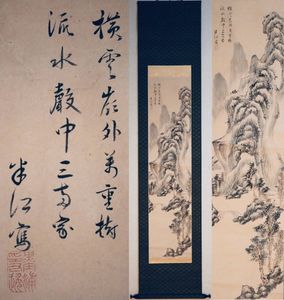 横雲嶺外萬重樹
流水聲中三両家
半江寫